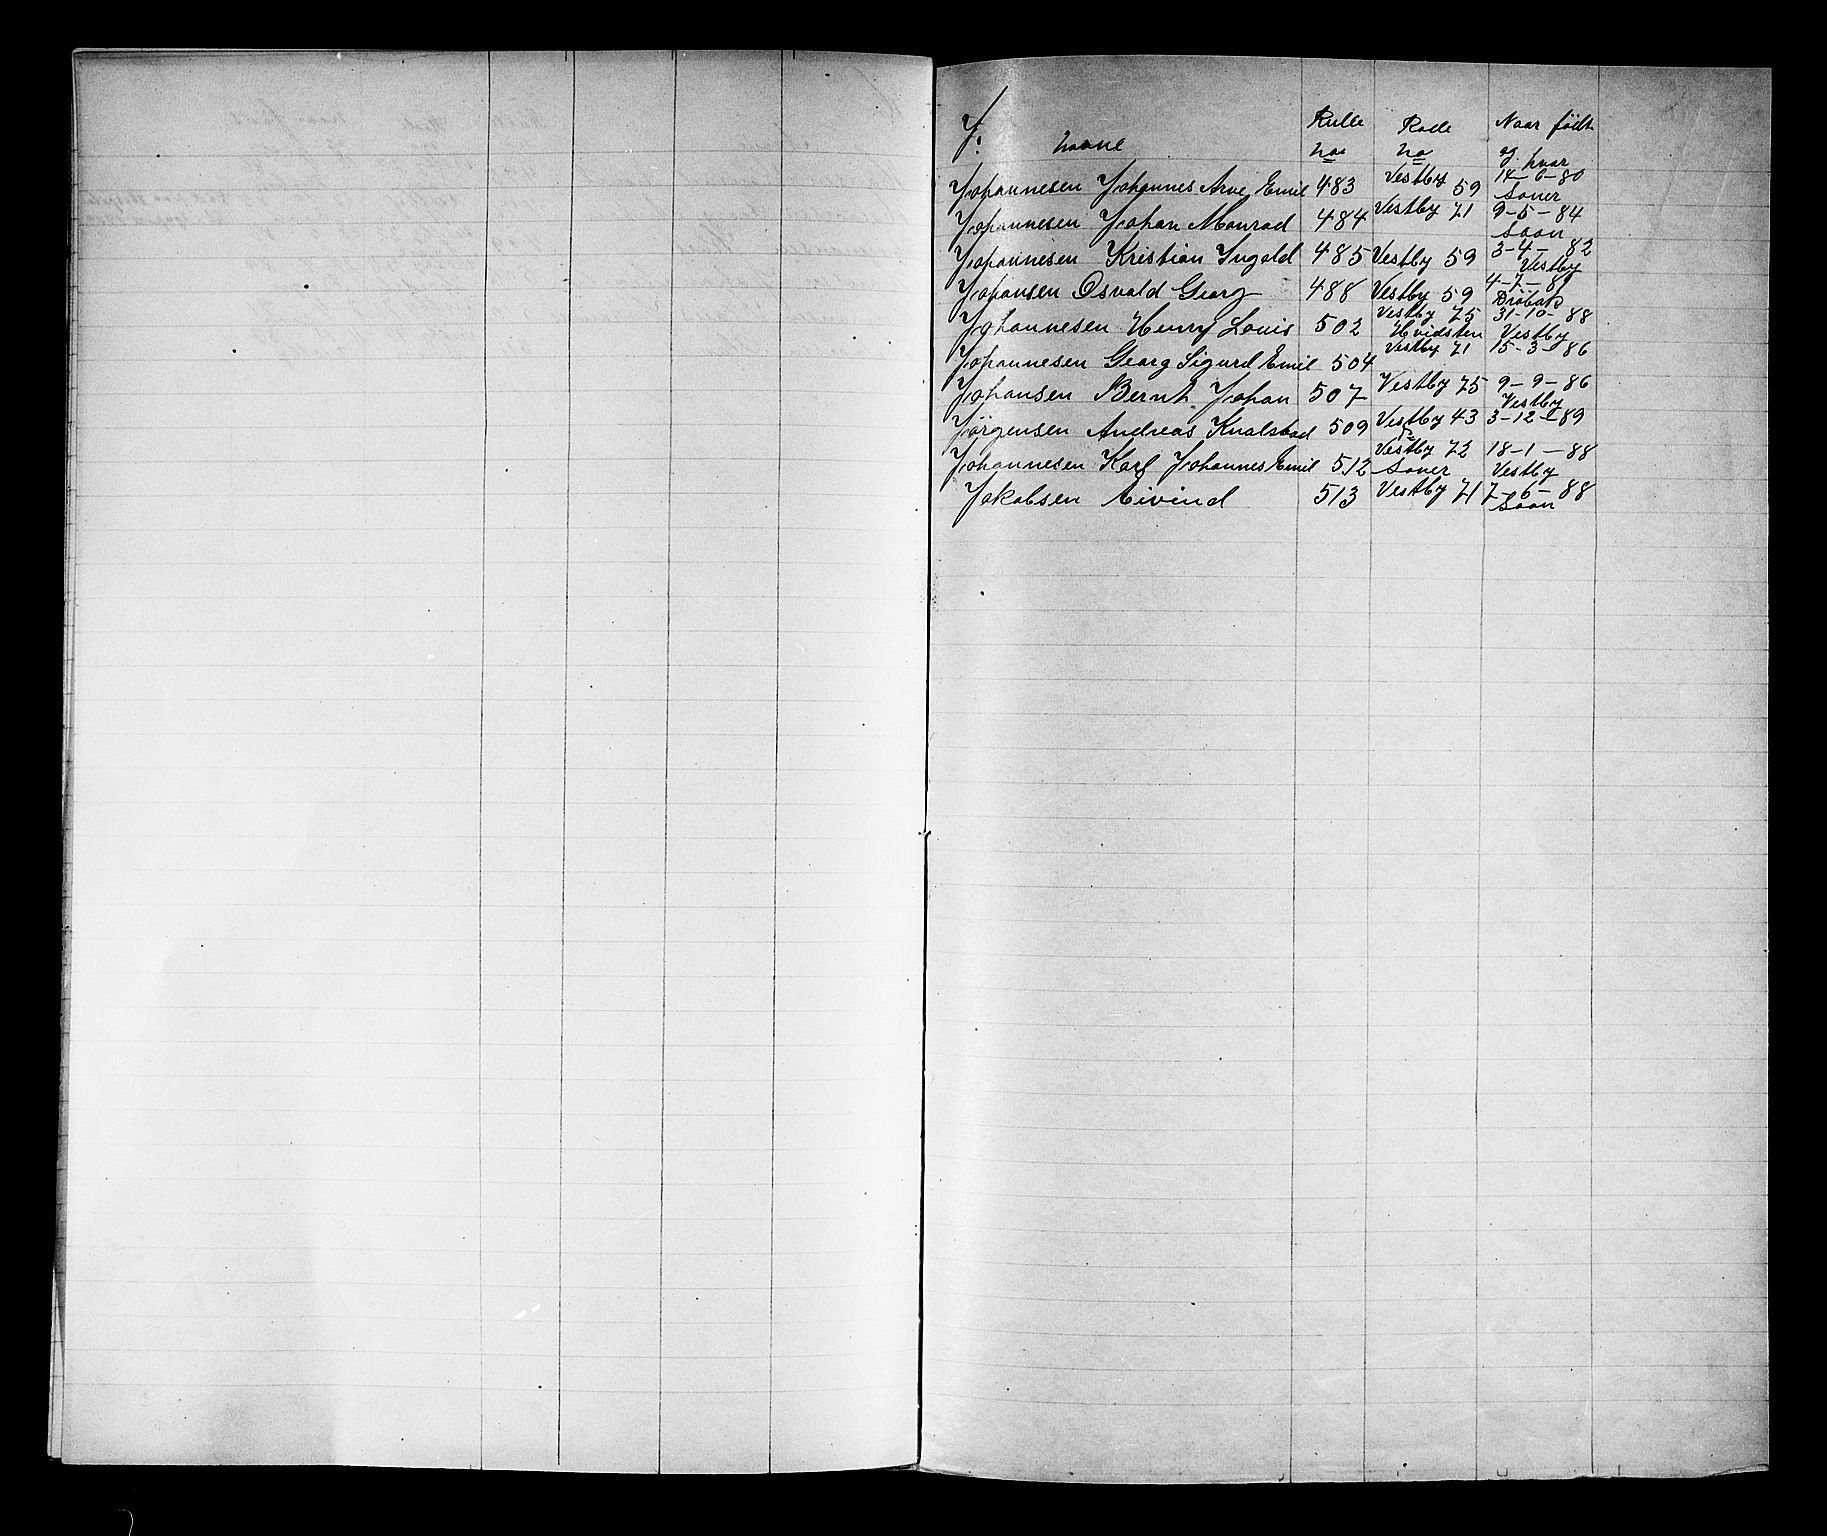 J. Navne Rulle no Rode no Naar født og hvor
Johannesen Johannes Arve Emil 483 Vestby 59 14-6-80 Soner
Johannesen Johan Monrad 484 Vestby 71 9-5-84 Soon
Johannesen Kristian Ingold 485 Vestby 59 3-4-82 Vestby
Johansen Osvald Georg 488 Vestby 59 4-7-81 Drøbak
Johannesen Henry Louis 502 Vestby 75 Hvidsten 31-10-88 Vestby
Johannesen Georg Sigurd Emil 504 Vestby 71 15-3-86
Johansen Bernh. Johan 507 Vestby 75 9-9-86 Vestby
Jørgensen Andreas Knalstad 509 Vestby 43 3-12-89
Johannesen Karl Johannes Emil 512 Vestby 72 Soner 18-1-88 Vestby
Jakobsen Eivind 513 Vestby 71 7-6-88 Soon